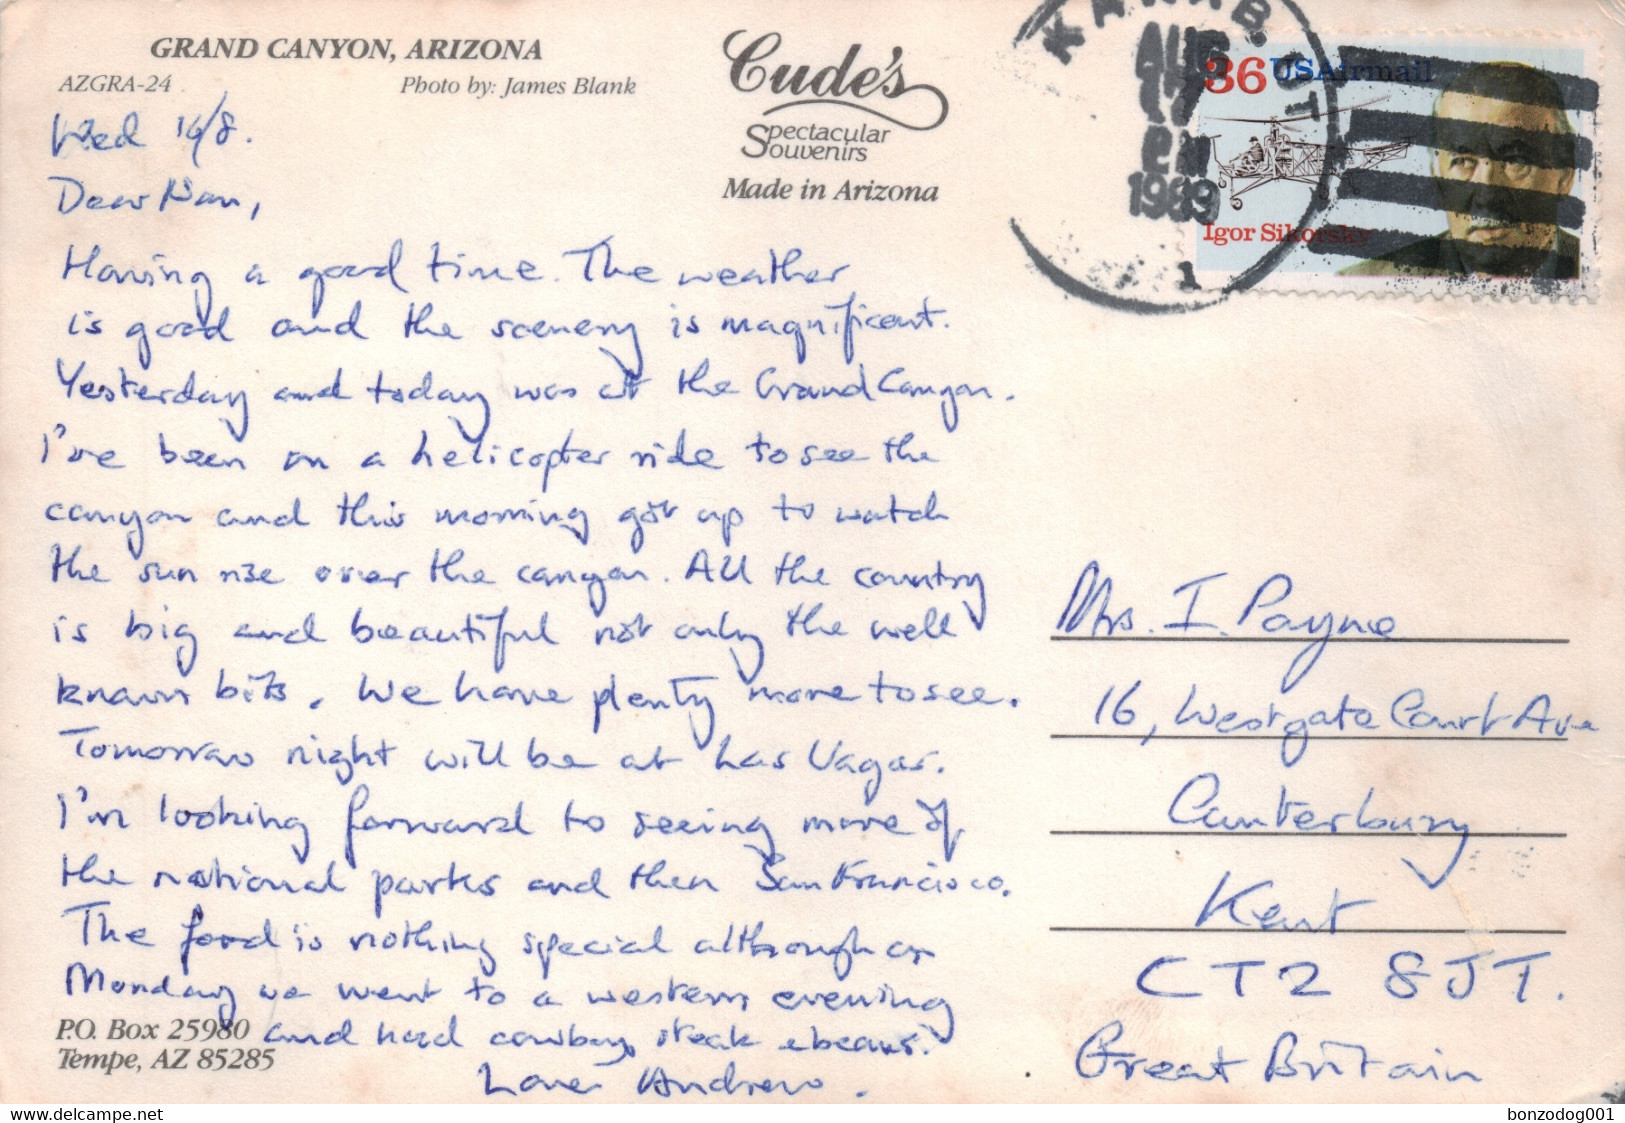 GRAND CANYON, ARIZONA
AZGRA-24 Photo by: James Blank
Cude's
Spectacular
Souvenirs
Made in Arizona
KANAB UT
AUG
17
PM
1989
1
36 USAirmail
Igor Sikorsky
Wed 16/8.
Dear Nan,
Having a good time. The weather
is good and the scenery is magnificent.
Yesterday and today was at the Grand Canyon.
I've been on a helicopter ride to see the
canyon and this morning got up to watch
the sun rise over the canyon. All the country
is big and beautiful not only the well
known bits. We have plenty more to see.
Tomorrow night will be at Las Vagas.
I'm looking forward to seeing more of
the national parks and then San Francisco.
The food is nothing special although on
Monday we went to a western evening
and had cowboy steak & beans.
Love Andrew.
P.O. Box 25980
Tempe, AZ 85285
Mrs. I. Payne
16, Westgate Court Ave
Canterbury
Kent
CT2 8JT.
Great Britain
delcampe.net
bonzodog001